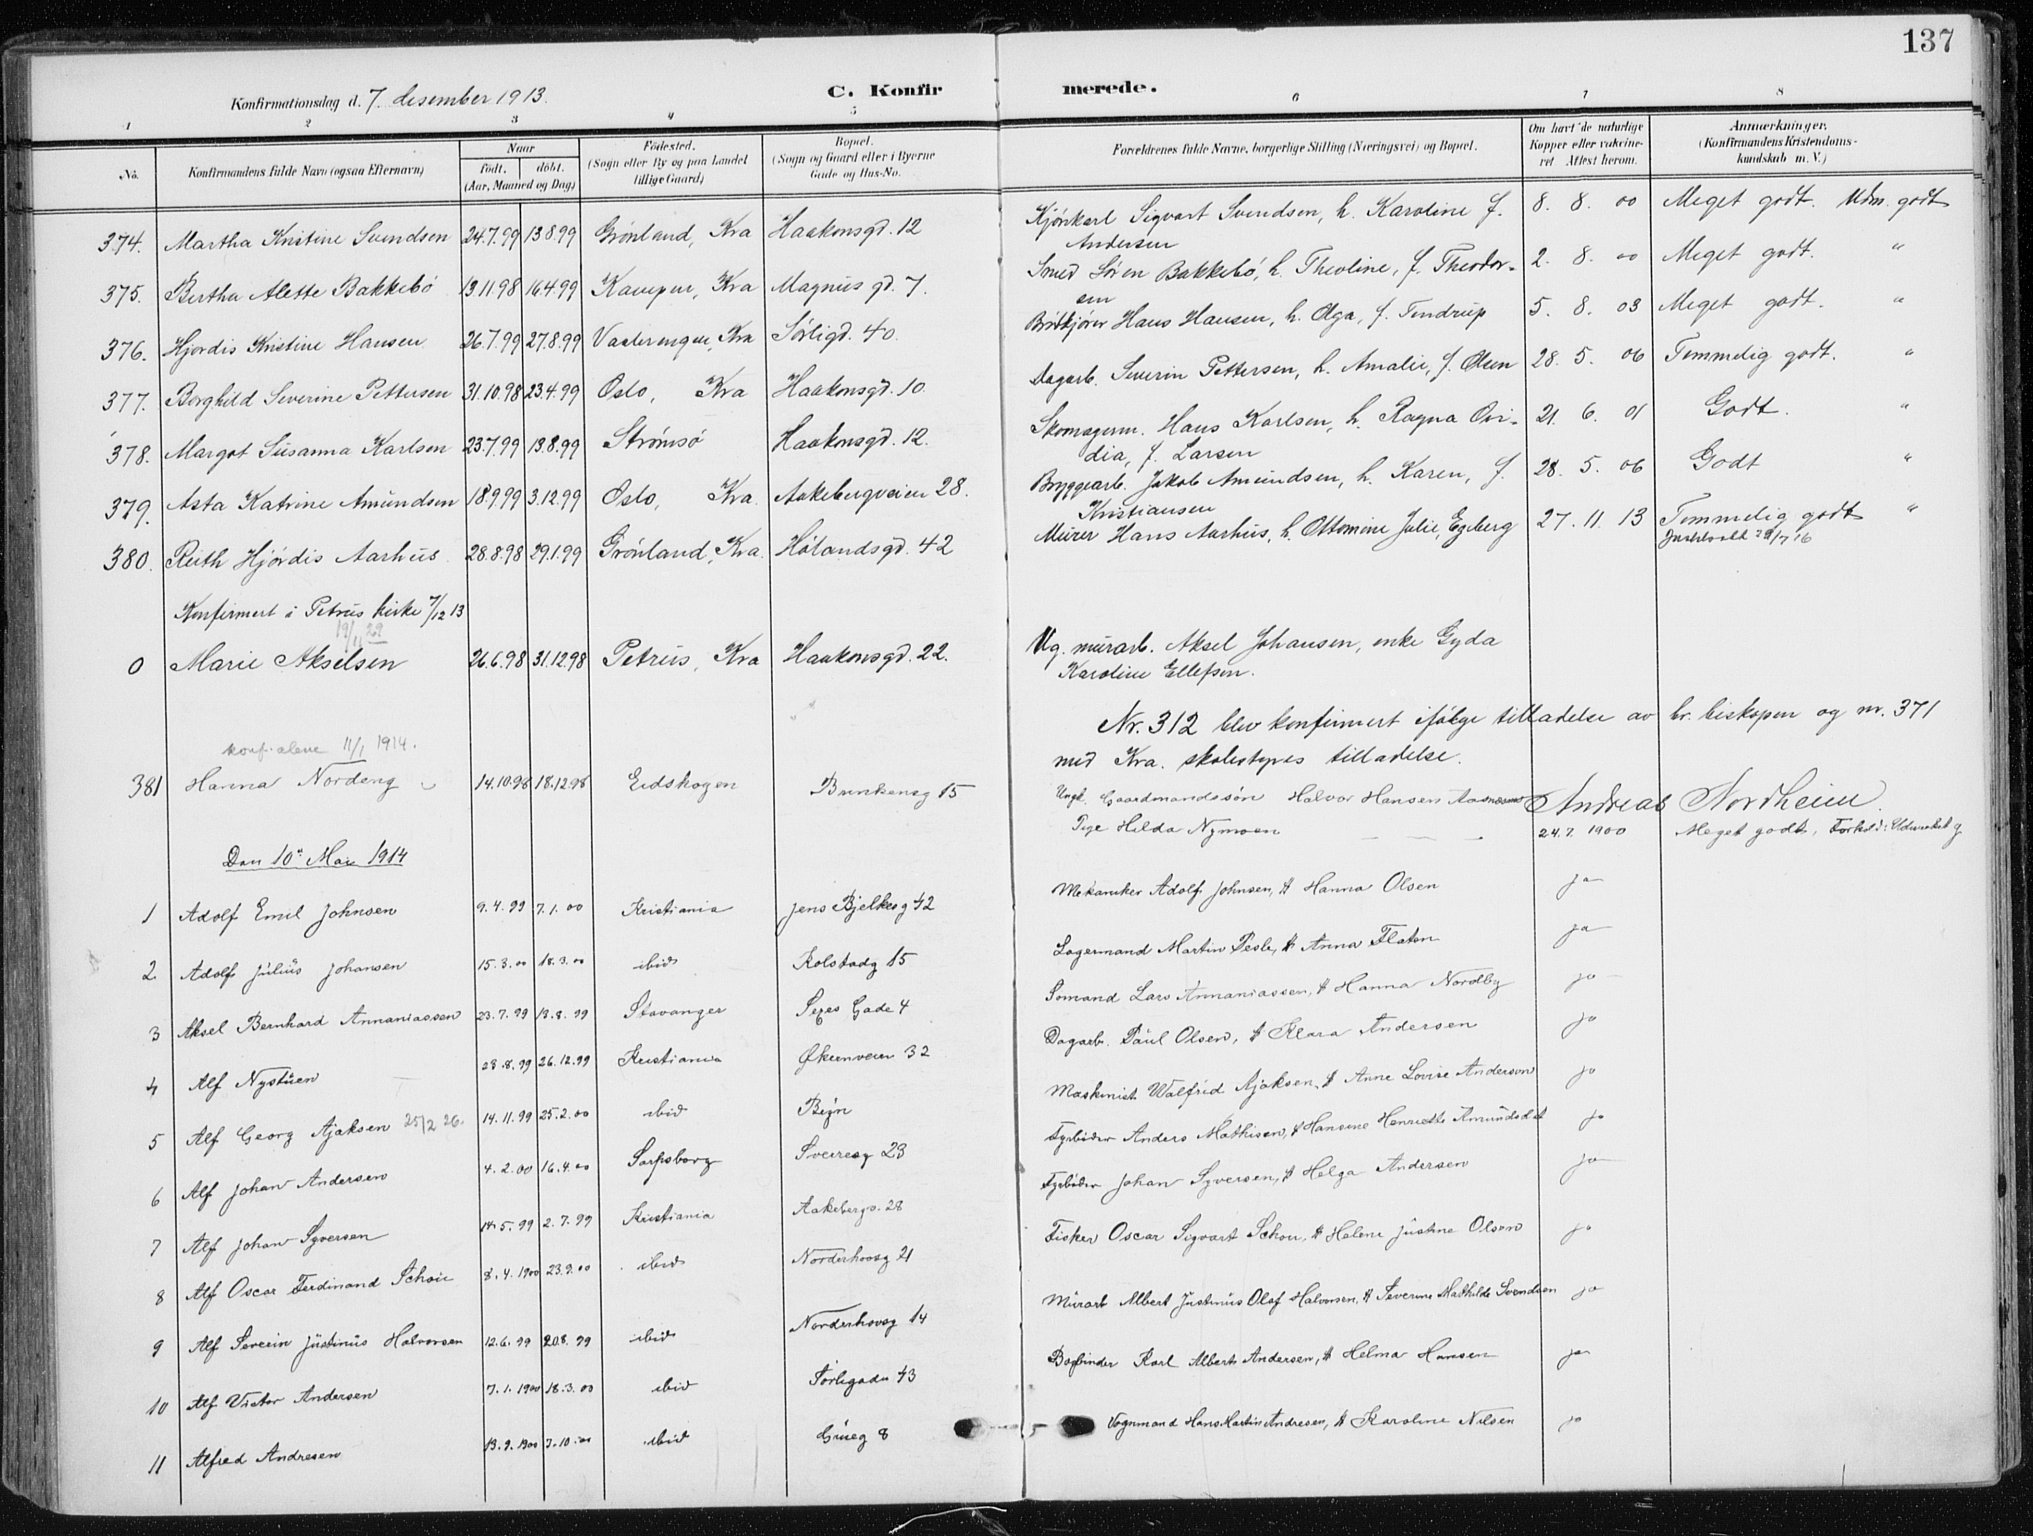 137
Konfirmationsdag d. 7. desember 1913. C. Konfir merede.
1 2 3 4 5 6 7 8
No. Konfirmandens fulde Navn (ogsaa Efternavn) Naar født, døbt. (Aar, Maaned og Dag) Fødested. (Sogn eller By og paa Landet tillige Gaard) Bopæl. (Sogn og Gaard eller i Byerne Gade og Hus-No. Forældrenes fulde Navne, borgerlige Stilling (Næringsvei) og Bopæl. Om havt de naturlige Kopper eller vakcineret Attest herom. Anmærkninger. (Konfirmandens Kristendomskundskab m. V.)
374. Martha Kristine Svendsen 24.7.99 13.8.99 Grønland, Kra Haakonsgd. 12 Kjørekarl Sigvart Svendsen, h. Karoline f. Andersen 8. 8. 00 Meget godt. Udm. godt
375. Bertha Alette Bakkebø 13.11.98 16.4.99 Kampen, Kra Magnus gd. 7. Smed Søren Bakkebø, h. Theoline, f. Theodorsen 2. 8. 00 Meget godt. "
376. Hjørdis Kristine Hansen 26.7.99 27.8.99 Vaalerengen, Kra Sørligd. 40. Hans Hansen, h. Olga, f. Tendrup 5. 8. 03 Meget godt. "
377. Borghild Severine Pettersen 31.10.98 23.4.99 Oslo, Kra Haakonsgd. 10 Dagarb. Severin Pettersen, h. Amalie, f. Olsen 28. 5. 06 Temmelig godt. "
378. Margot Susanna Karlsen 23.7.99 13.8.99 Strømsø Haakonsgd. 12. Skomagerm. Hans Karlsen, h. Ragna Ovidia, f. Larsen 21. 6. 01 Godt. "
379. Asta Katrine Amundsen 18.9.99 3.12.99 Oslo, Kra. Aakebergveien 28. Bryggearb. Jakob Amundsen, h. Karen, f. Kristiansen 28. 5. 06 Godt "
380. Ruth Hjørdis Aarhus 28.8.98 29.1.99 Grønland, Kra. Hølandsgd. 42 Murer Hans Aarhus, h. Ottomine Julie, Egeberg 27. 11. 13 Temmelig godt "
Konfirmert i Petrus kirke 7/12 13
19/11 29
0 Marie Akselsen 26.6.98 31.12.98 Petrus, Kra Haakonsgd. 22. Ug. murarb. Aksel Johansen, enke Gyda
Karoline Ellefsen.
Nr. 312 blev konfirmert ifølge tilladelse av hr. biskopen og nr. 371
med Kra. skolestyres tilladelse.
Andreas Nordheim.
konf. alene 11/1 1914.
381 Hanna Nordeng 14.10.98 18.12.98 Eidskogen Brinkensg 15 Ungk. Gaardmandssøn Halvor Hansen
Pige Hilda Nymoen 24.7. 1900 Meget godt. Forhold: Udmerket g
Den 10de Mai 1914
1 Adolf Emil Johnsen 9.4.99 7.1.00 Kristiania Jens Bjelkesg 42 Mekaniker Adolf Johnsen, H Hanna Olsen ja
2 Adolf Julius Johansen 15.3.00 18.3.00 ibid Rolstadg 15 Lagermand Martin Pesle, H Anna Flaten ja
3 Aksel Bernhard Annaniassen 23.7.99 13.8.99 Stavanger Sexes Gade 4 Sømand Lars Annaniassen, H Hanna Nordby ja
4 Alf Nystuen 28.8.99 26.12.99 Kristiania Økernveien 32 Dagarb. Paul Olsen, H Klara Andersen ja
5 Alf Georg Ajaksen 25/2 26. 14.11.99 25.2.00 ibid Maskinist Walfrid Ajaksen, H Anne Lovise Andersen ja
6 Alf Johan Andersen 4.2.00 16.4.00 Sarpsborg Sverresg 23 Fyrbøder Anders Mathisen, H Hansine Henriette Amundsdat ja
7 Alf Johan Syversen 14.5.99 2.7.99 Kristiania Aakebergv. 28 Fyrbøder Johan Syversen, H Helga Andersen ja
8 Alf Oscar Ferdinand Schou 8.4.1900 23.9.00 ibid Norderhovsg 21 Fisker Oscar Sigvart Schou, H Helene Justine Olsen ja
9 Alf Severin Justinus Halvorsen 12.6.99 20.8.99 ibid Norderhovsg 14 Murarb Albert Justinus Olaf Halvorsen, H Severine Mathilde Svendsen ja
10 Alf Victor Andersen 7.1.1900 18.3.00 ibid Sørligaden 43 Bogbinder Karl Albert Andersen, H Helma Hansen ja
11 Alfred Andresen 13.9.1900 7.10.00 ibid Grüeg 8 Vognmand Hans Martin Andresen, H Karoline Nilsen ja